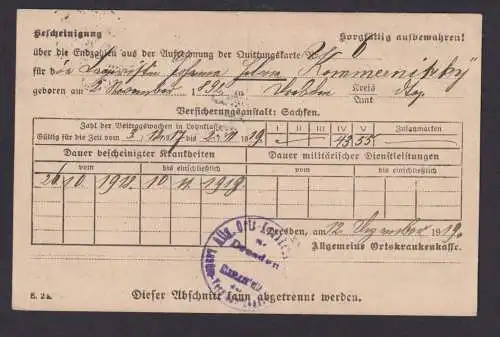 Bescheinigung Sorgfältig aufbewahren!
über die Endzahlen aus der Aufrechnung der Quittungskarte Nr. 6
für die Helene Kommernitzky
geboren am 5. November 189 in Dresden Kreis Amt
Versicherungsanstalt: Sachsen.
Zahl der Beitragswochen in Lohnklasse I II III IV V Zusammen
Gültig für die Zeit vom 17 bis 1919 43 55
Dauer bescheinigter Krankheiten Dauer militärischer Dienstleistungen
vom bis einschließlich vom bis einschließlich
26 10. 1918. 10 11 1918
Dresden, am 12 Dezember 1919.
Allgemeine Ortskrankenkasse.
Allg. Orts-
Dresden
E. 2a. Dieser Abschnitt kann abgetrennt werden.